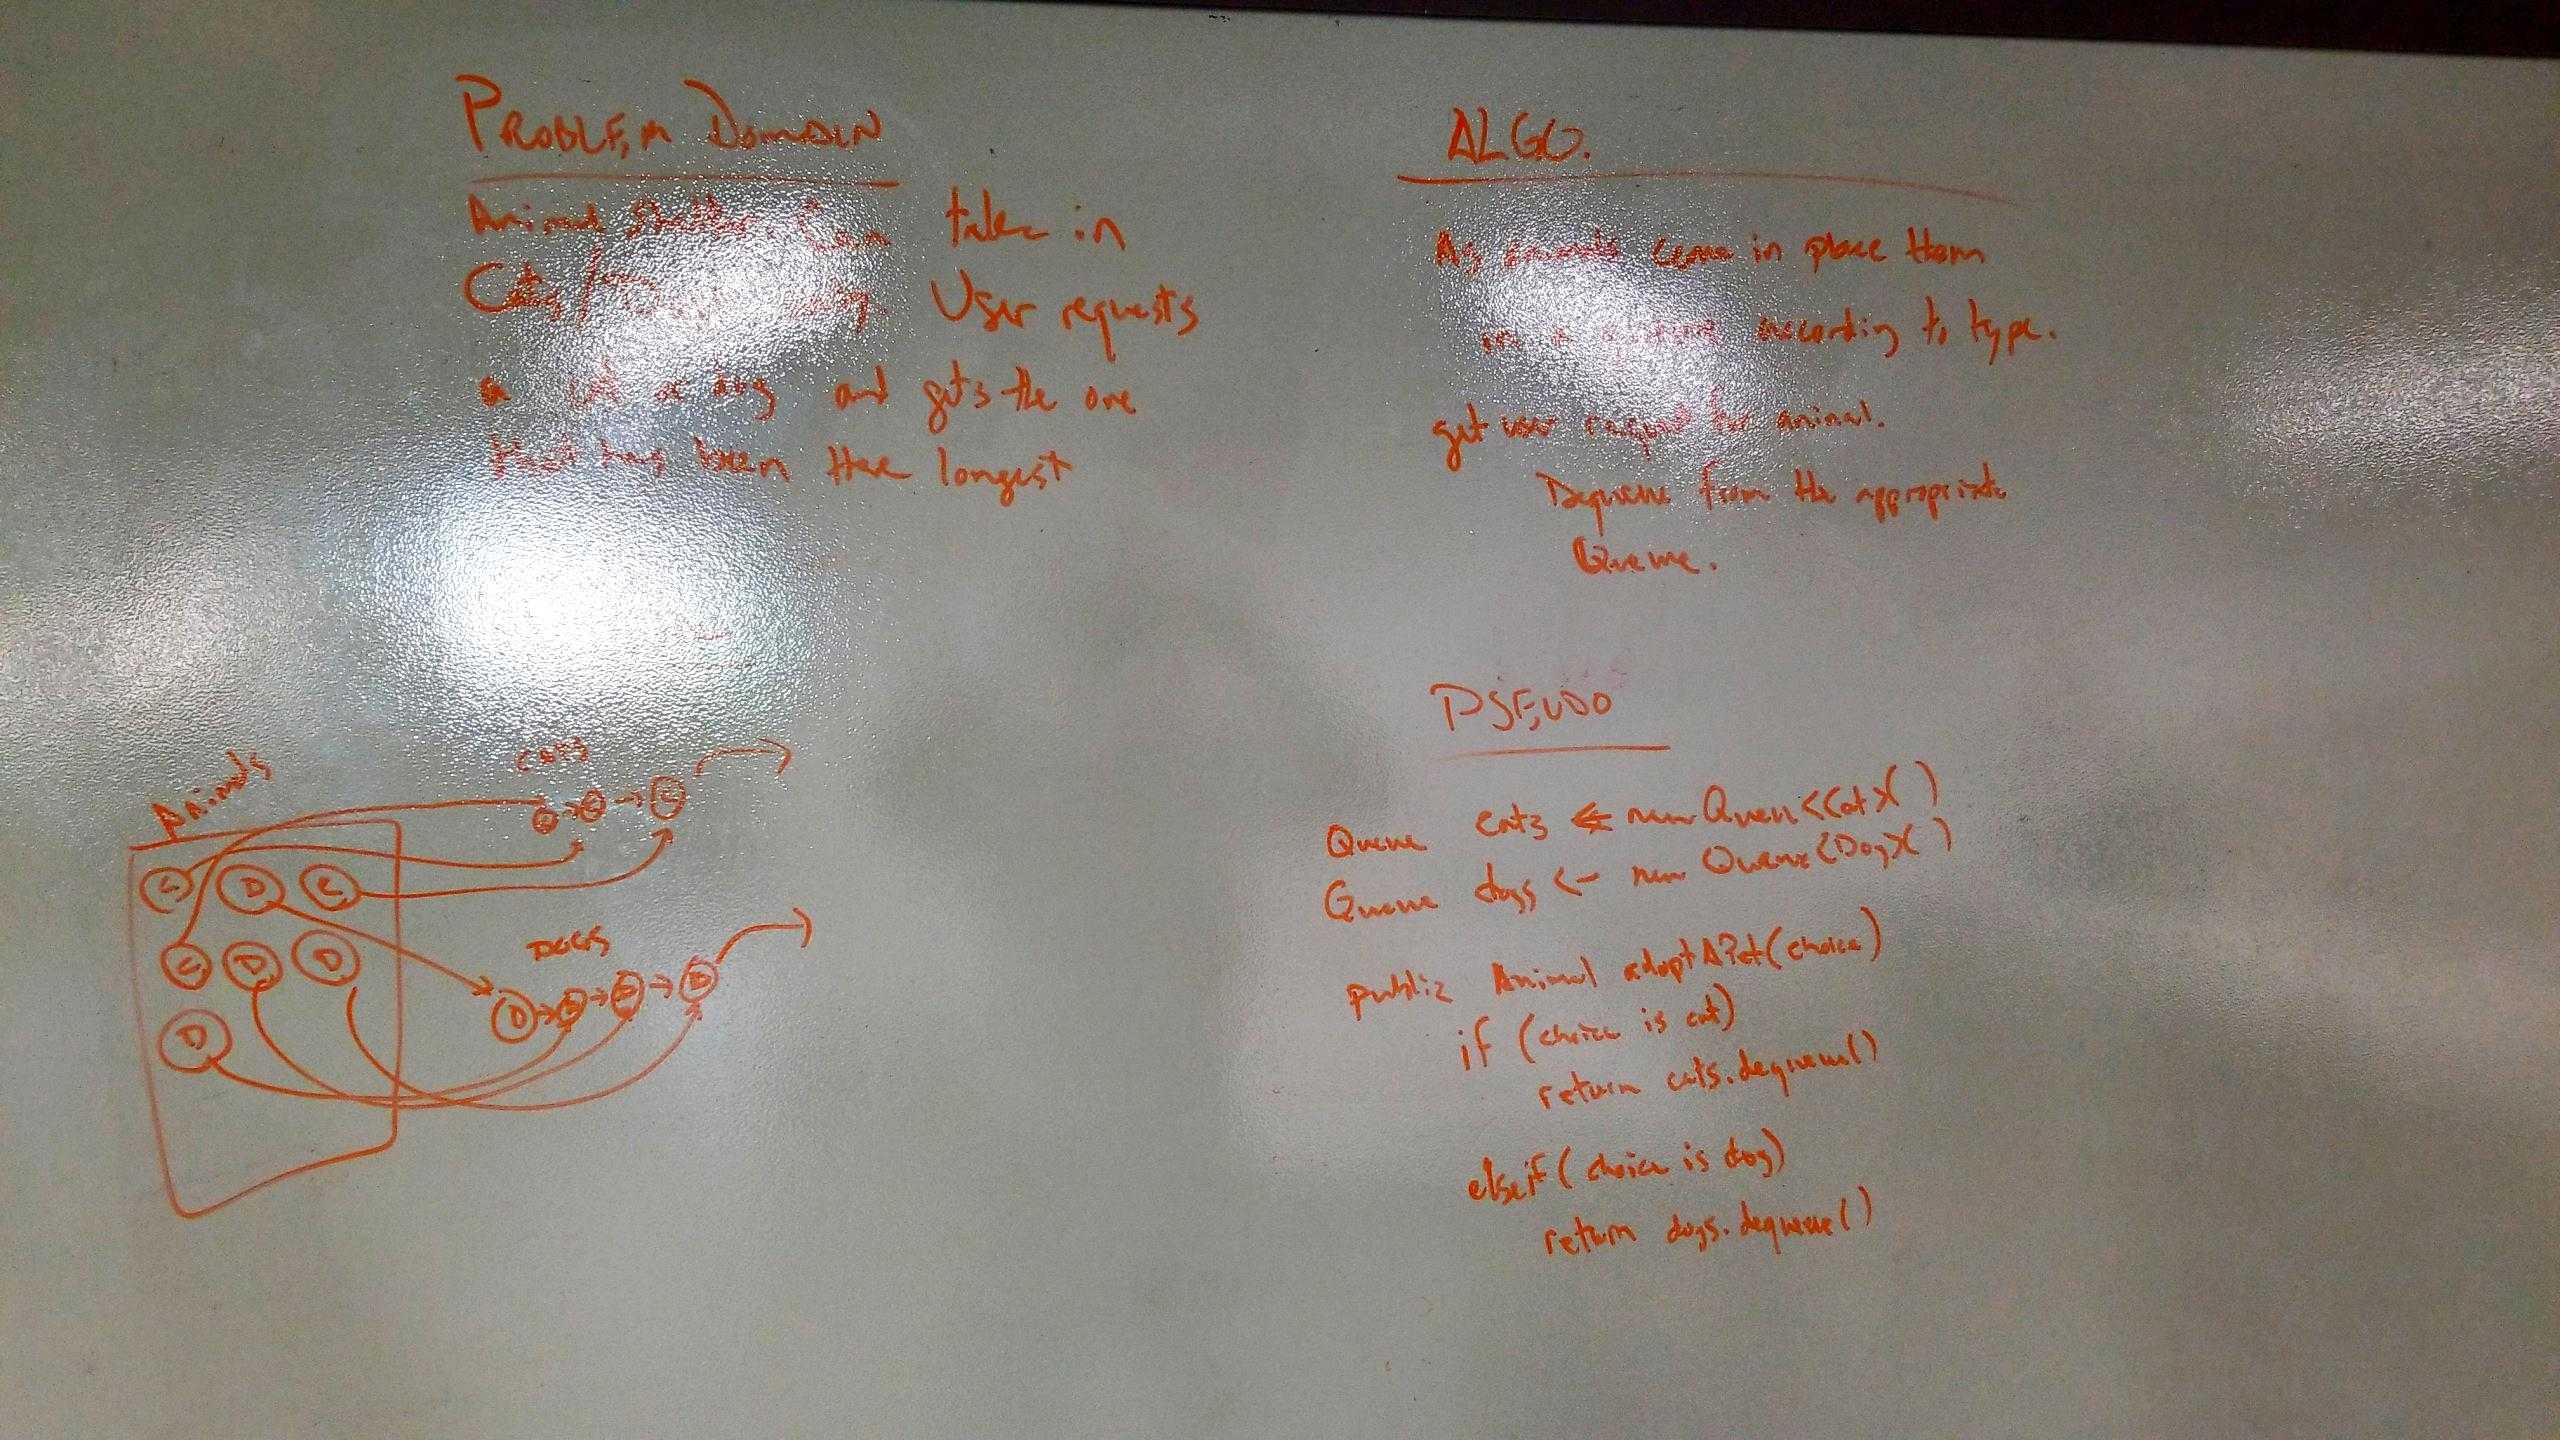 PROBLEM DOMAIN
Animal Shelter. Can take in
Cats/Dogs only. User requests
a cat or dog and gets the one
that has been there longest
ALGO.
As animals come in place them
in a queue according to type.
get user request for animal.
Dequeue from the appropriate
Queue.
PSEUDO
Queue cats <- new Queue<Cat>()
Queue dogs <- new Queue<Dog>()
public Animal adoptAPet(choice)
if (choice is cat)
return cats.dequeue()
elseif (choice is dog)
return dogs.dequeue()
Animals
CATS
C D C
C D D
D
C
DOGS
D D